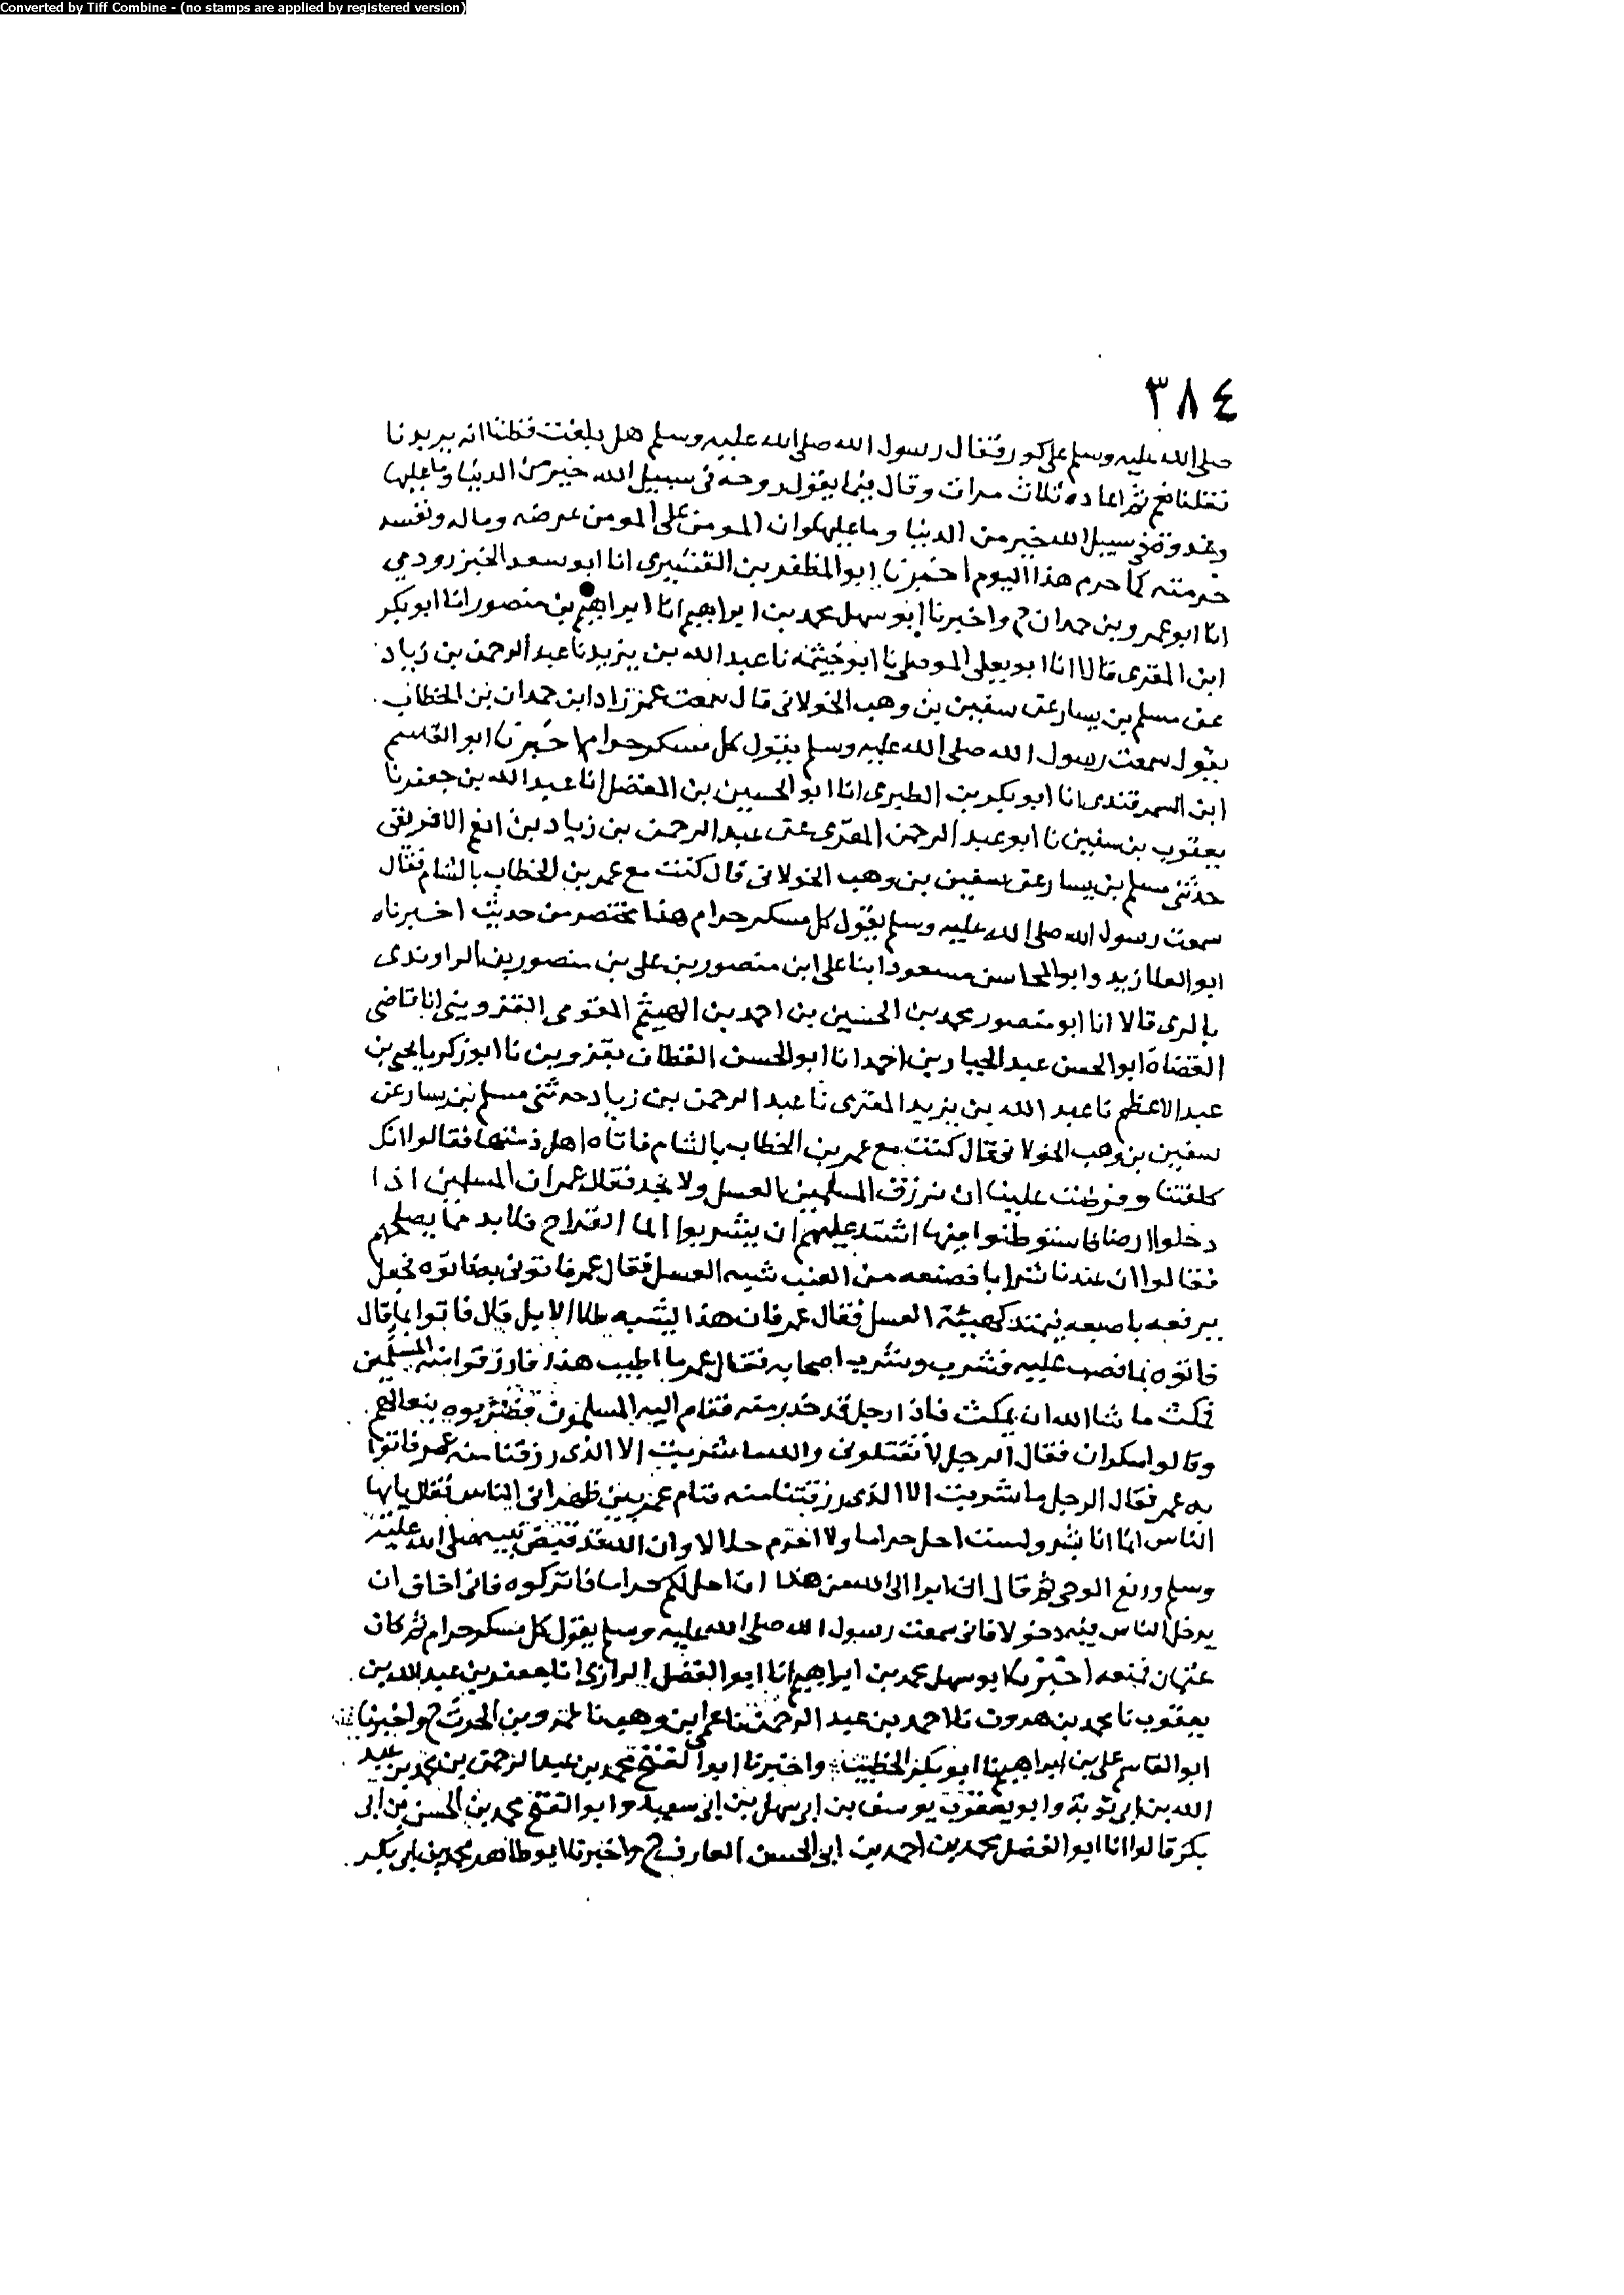 Converted by Tiff Combine - (no stamps are applied by registered version)
٣٨٤
صلى الله عليه وسلم على كور فقال رسول الله صلى الله عليه وسلم هل بلغت فظننا انه يريدنا
فقلنا نعم ثم اعاده ثلاث مرات وقال فيما يقول روحه فى سبيل الله خير من الدنيا وما عليها
وغدوة فى سبيل الله خير من الدنيا وما عليها وان المومن على المومن عرضه وماله ونفسه
حرمته كما حرم هذا اليوم اخبرنا ابو المظفر بن القشيرى انا ابو سعد الخنزرودى
انا ابو عمرو بن حمدان ح واخبرنا ابو سهل محمد بن ابراهيم انا ابراهيم بن منصور انا ابو بكر
ابن المقرى قالا انا ابو يعلى الموصلى نا ابو خيثمه نا عبد الله بن يزيد نا عبد الرحمن بن زياد
عن مسلم بن يسار عن سفين بن وهب الخولانى قال سمعت عمر زاد ابن حمدان بن الخطاب
يقول سمعت رسول الله صلى الله عليه وسلم يقول كل مسكر حرام اخبرنا ابو القسم
ابن السمرقندى انا ابو بكر بن الطبرى انا ابو الحسين بن الفضل انا عبد الله بن جعفر نا
يعقوب بن سفين نا ابو عبد الرحمن المقرى عن عبد الرحمن بن زياد بن انعم الافريقى
حدثنى مسلم بن يسار عن سفين بن وهب الخولانى قال كنت مع عمر بن الخطاب بالشام فقال
سمعت رسول الله صلى الله عليه وسلم يقول كل مسكر حرام هذا مختصر من حديث اخبرناه
ابو العلا زيد وابو المحاسن مسعود ابنا على ابن منصور بن على بن منصور بن الراوندى
بالرى قالا انا ابو منصور محمد بن الحسين بن احمد بن الهيثم المقومى القزوينى انا قاضى
القضاة ابو الحسن عبد الجبار بن احمد انا ابو الحسن القطان بقزوين نا ابو زكريا يحيى بن
عبد الاعظم نا عبد الله بن يزيد المقرى نا عبد الرحمن بن زياد حدثنى مسلم بن يسار عن
سفين بن وهب الخولانى قال كنت مع عمر بن الخطاب بالشام فاتاه اهل ذمتها فقالوا انك
كلفتنا وفرضت علينا ان نرزق المسلمين العسل ولا نجد فقال عمر ان المسلمين اذا
دخلوا ارضا فاستوطنوا فيها اشتد عليهم ان يشربوا الما القراح فلا بد مما يصلحهم
فقالوا ان عندنا شرابا نصنعه من العنب شبه العسل فقال عمر فاتونى به فاتوه فجعل
يرفعه باصبعه فيمتد كهيئة العسل فقال عمر فان هذا يشبه طلا الابل قال فاتوا بما قال
فاتوه بما فصب عليه فشرب وشرب اصحابه فقال عمر ما اطيب هذا فارزقوا منه المسلمين
فمكث ما شا الله ان يمكث فاذا رجل قد خدر منه فقام اليه المسلمون فضربوه بنعالهم
وقالوا سكران فقال الرجل لا تقتلونى والله ما شربت الا الذى رزقنا منه عمر فاتوا
به عمر فقال الرجل ما شربت الا الذى رزقتنا منه فقام عمر بين ظهرانى الناس فقال يا ايها
الناس انما انا بشر ولست احل حراما ولا احرم حلالا وان الله قد قبض نبيه صلى الله عليه
وسلم ورفع الوحى ثم قال انى ابرا الى الله من هذا ان احل لكم حراما فاتركوه فانى اخاف ان
يدخل الناس فيه دخولا فانى سمعت رسول الله صلى الله عليه وسلم يقول كل مسكر حرام ثم كان
عثمان فمنعه اخبرنا ابو سهل محمد بن ابراهيم انا ابو الفضل الرازى انا جعفر بن عبد الله بن
يعقوب نا محمد بن هرون نا احمد بن عبد الرحمن نا عمى ابن وهب نا عمرو بن الحرث ح واخبرنا
ابو القاسم على بن ابراهيم نا ابو بكر الخطيب واخبرنا ابو الفتح محمد بن عبد الرحمن بن محمد بن عبد
الله بن ابى توبة وابو يعقوب يوسف بن ابى سهل بن ابى سعيد وابو الفتح محمد بن الحسن بن ابى
بكر قالوا انا ابو الفضل محمد بن احمد بن ابى الحسن العارف ح واخبرنا ابو طاهر محمد بن ابى بكر